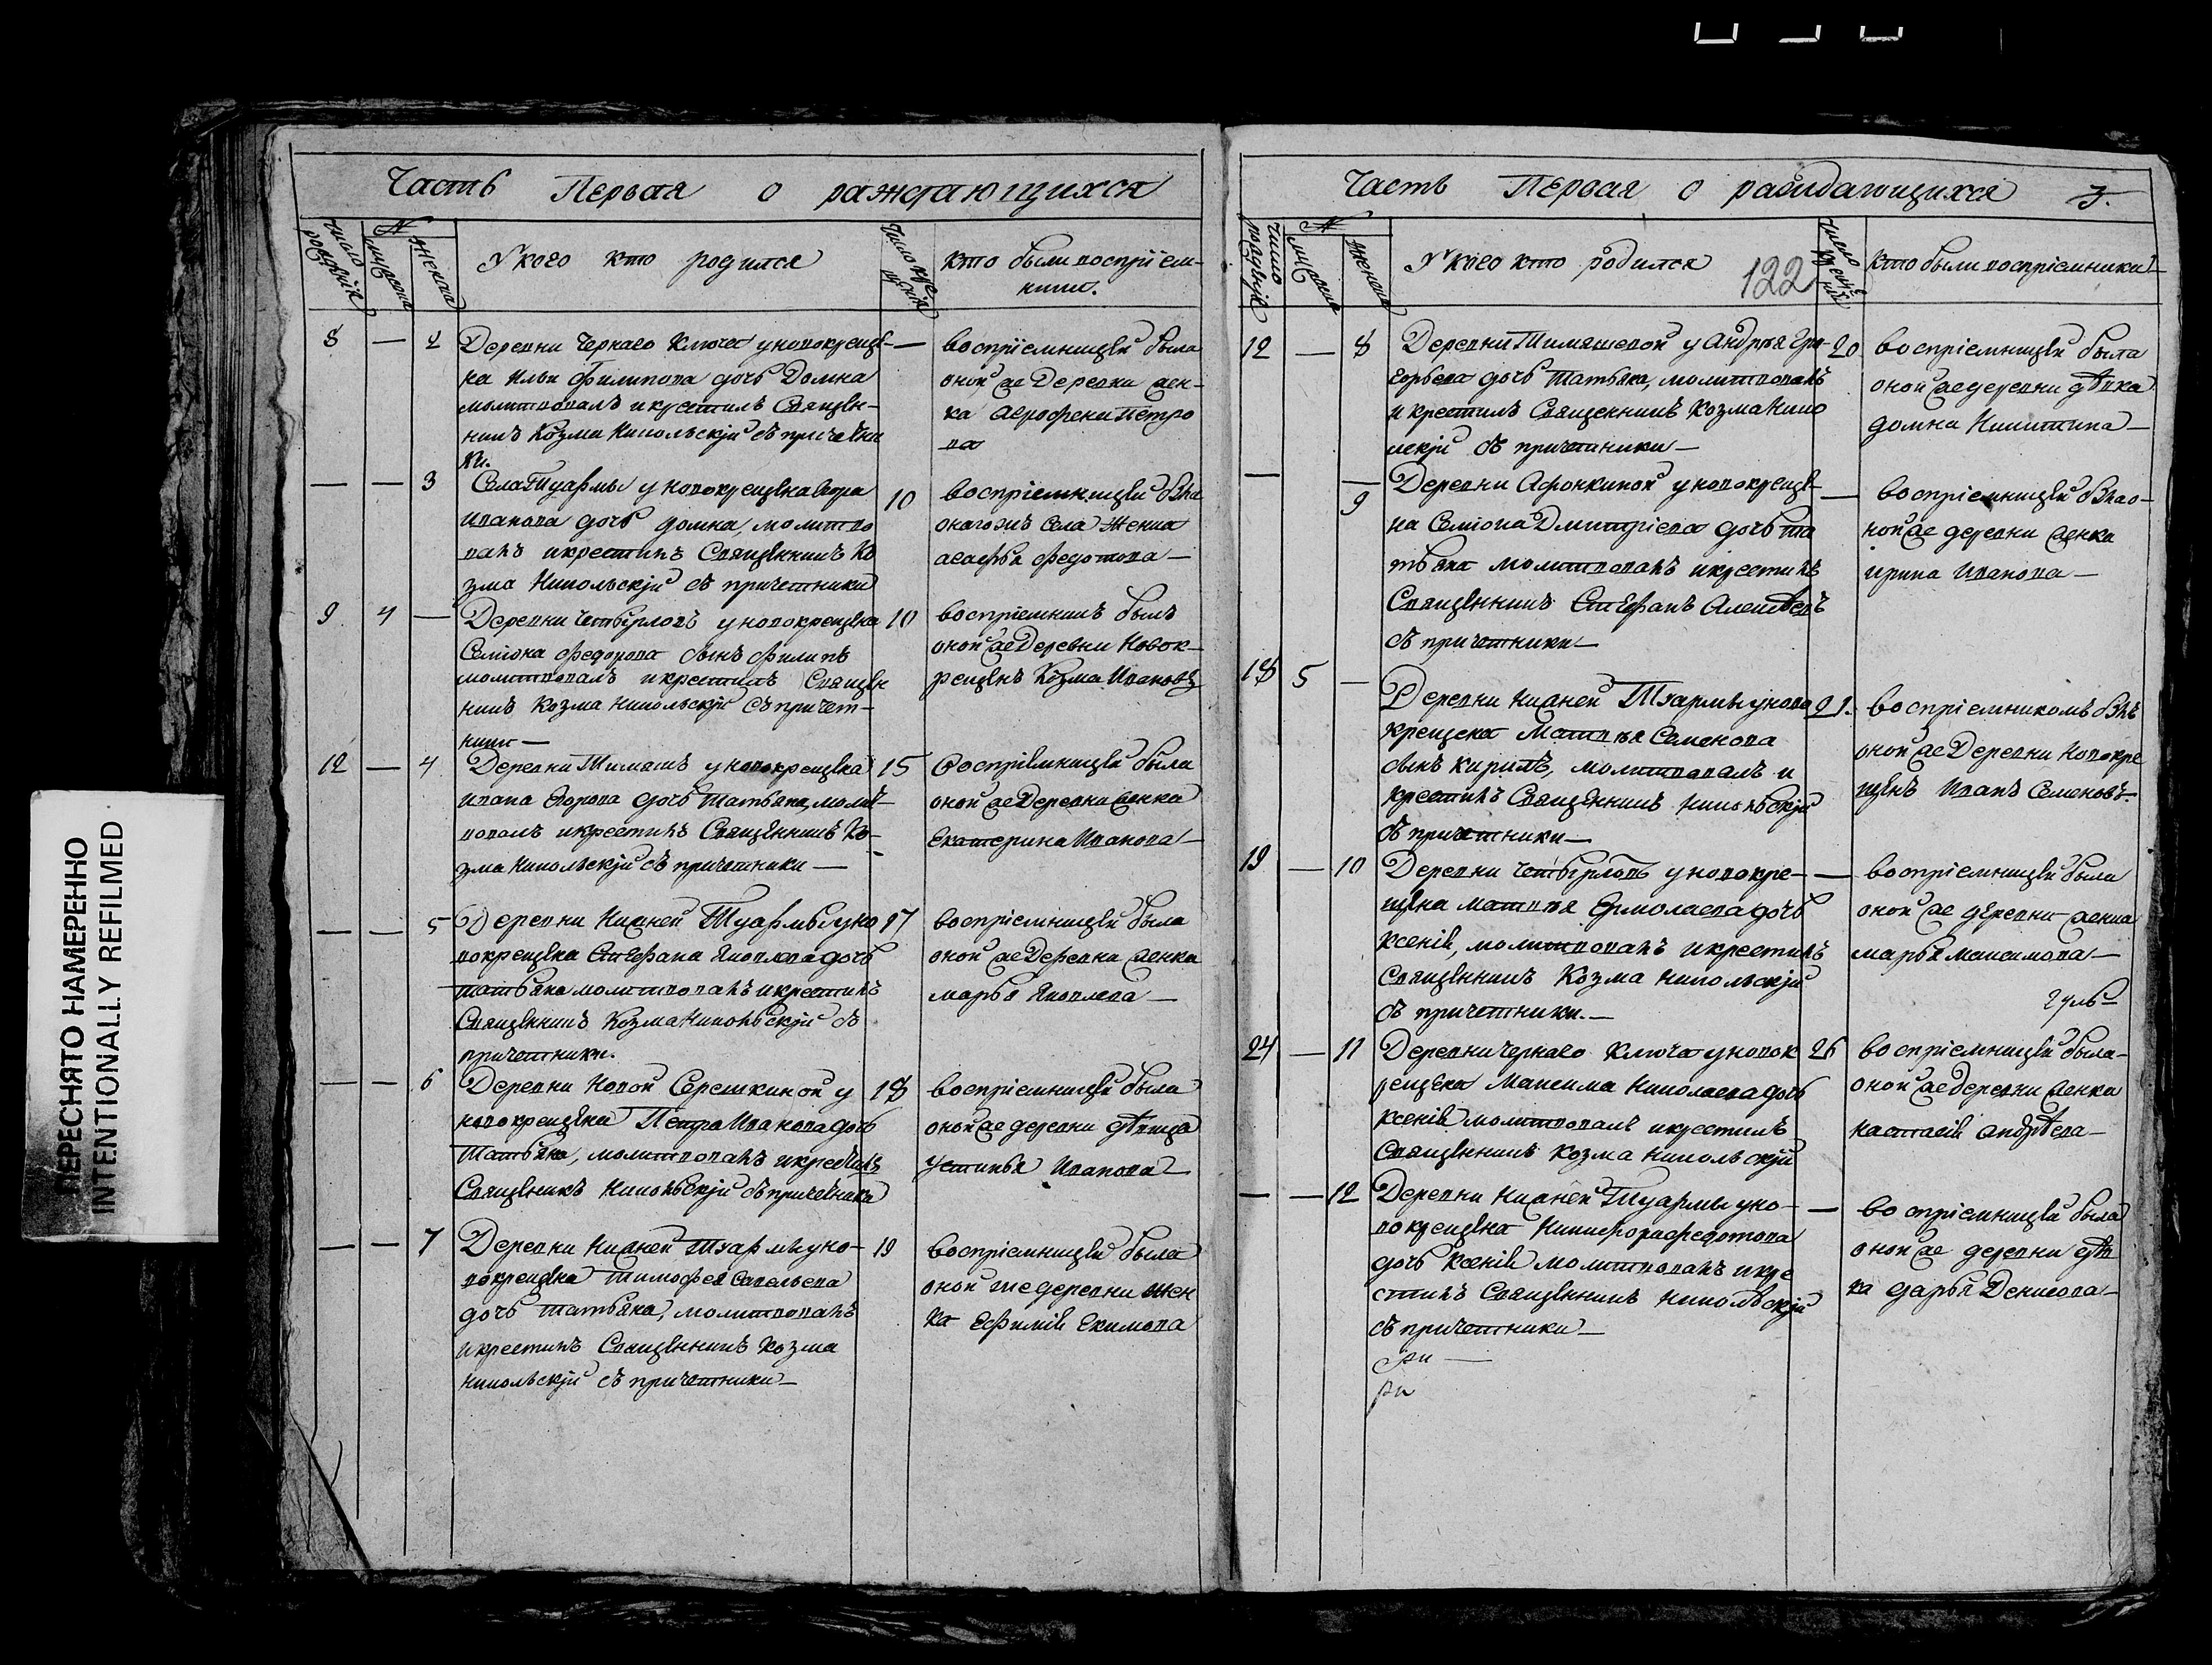 Часть Первая о раждающихся
Число рождѣнія
№
мужеска
женска
У кого кто родился
Число крещенія
кто были воспріем-
ники.
8 — 2 Деревни Чернаго Ключа у новокрещѣ- —
на Ильи Филипова дочь Домна
молитвовалъ и крестилъ Священ-
никъ Козма Никольскій съ причетни
ки.
воспріемницей была
оной же Деревни жен-
ка Агрофени Петро
ва
— — 3 Села Туармы у новокрещена
Иванова дочь домна, молитво
валъ и крестилъ Священникъ Ко
зма Никольскій съ причетники
10 воспріемницей
онагожъ Села Жена
агафья Федотова —
9 4 — Деревни Четырловъ у новокрещена 10
Семіона Федорова сынъ Филипъ
молитвовалъ и крестилъ Священ
никъ Козма Никольскій съ причет-
ники —
воспріемникъ былъ
оной же Деревни Новок-
рещенъ Козма Ивановъ
12 — 4 Деревни Тимяшъ у новокрещена 15
Ивана Егорова дочь Татьяна, молит-
вовалъ и крестилъ Священникъ Ко-
зма Никольскій съ причетники —
Воспріемницей была
оной же Деревни женка
Екатерина Иванова —
— — 5 Деревни Нижней Туармы у но 17
вокрещена Стефана Яковлева дочь
татьяна молитвовалъ и крестилъ
Священникъ Козма Никольскій съ
причетники.
воспріемницей была
оной же Деревни женка
марья Яковлева —
— — 6 Деревни Новой Серешкиной у 18
новокрещена Петра Иванова дочь
Татьяна, молитвовалъ и крестилъ
Священникъ Никольскій съ причетники
воспріемницей была
оной же деревни дѣвица
устинья Иванова
— — 7 Деревни Нижней Туармы у но- 19
вокрещена Тимофея Савельева
дочь татьяна, молитвовалъ
и крестилъ Священникъ Козма
Никольскій съ причетники —
воспріемницей была
оной же деревни жен
ка Ефимія Екимова
Часть Первая о раждающихся 3.
Число рождѣнія
№
мужеска
женска
У кого кто родился
122
Число крещенія
кто были воспріемники
12 — 8 Деревни Тимяшевой у Андрея Гри- 20
горьева дочь Татьяна, молитвовалъ
и крестилъ Священникъ Козма Нико
льскій съ причетники —
воспріемницей была
оной же деревни дѣвка
домна Никитина —
— — 9 Деревни Афонкиной у новокреще- —
на Семіона Дмитріева дочь та
тьяна молитвовалъ и крестилъ
Священникъ Стефанъ Алексѣевъ
съ причетники —
воспріемницей
ной же деревни женка
ирина Иванова —
18 5 — Деревни Нижней Туармы у ново 21.
крещена Матвѣя Семенова
сынъ Кирилъ, молитвовалъ и
крестилъ Священникъ Никольскій
съ причетники —
воспріемникомъ
оной же Деревни Новокре
щенъ Иванъ Семеновъ.
19 — 10 Деревни Четырловъ у новокре- —
щена матвѣя Ермолаева дочь
Ксенія, молитвовалъ и крестилъ
Священникъ Козма Никольскій
съ причетники. —
воспріемницей была
оной же деревни женка
марья максимова —
24 — 11 Деревни Чернаго Ключа у новок 26
рещена Максима Николаева дочь
ксенія молитвовалъ и крестилъ
Священникъ Козма Никольскій
воспріемницей была-
оной же деревни женка
настасія андрѣева —
— — 12 Деревни Нижней Туармы у но- —
вокрещена Никифора федотова
дочь Ксенія молитвовалъ и кре
стилъ Священникъ Никольскій
съ причетники —
воспріемницей была
оной же деревни дѣв
ка дарья Денисова —
ПЕРЕСНЯТО НАМЕРЕННО
INTENTIONALLY REFILMED